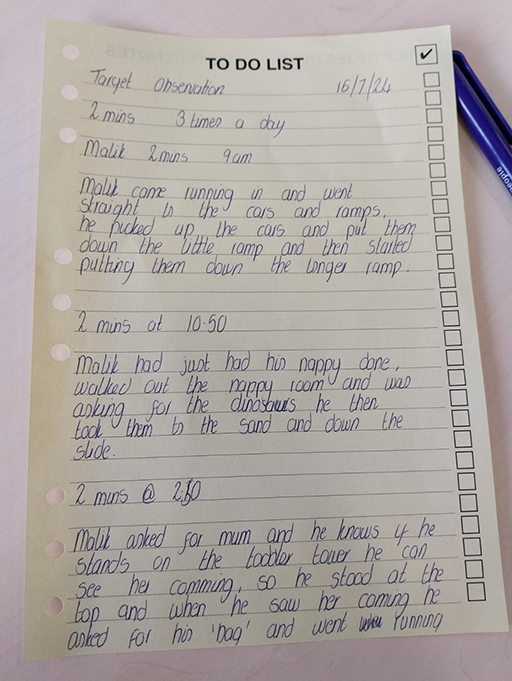 TO DO LIST
✔
Target Observation 16/7/24
2 mins 3 times a day
Malik 2mins 9am
Malik came running in and went
straight to the cars and ramps,
he picked up the cars and put them
down the little ramp and then started
putting them down the longer ramp.
2 mins at 10.50
Malik had just had his nappy done,
walked out the nappy room and was
asking for the dinosaurs he then
took them to the sand and down the
slide.
2 mins @
Malik asked for mum and he knows if he
stands on the toddler tower he can
see her comming, so he stood at the
top and when he saw her coming he
asked for his 'bag' and went running